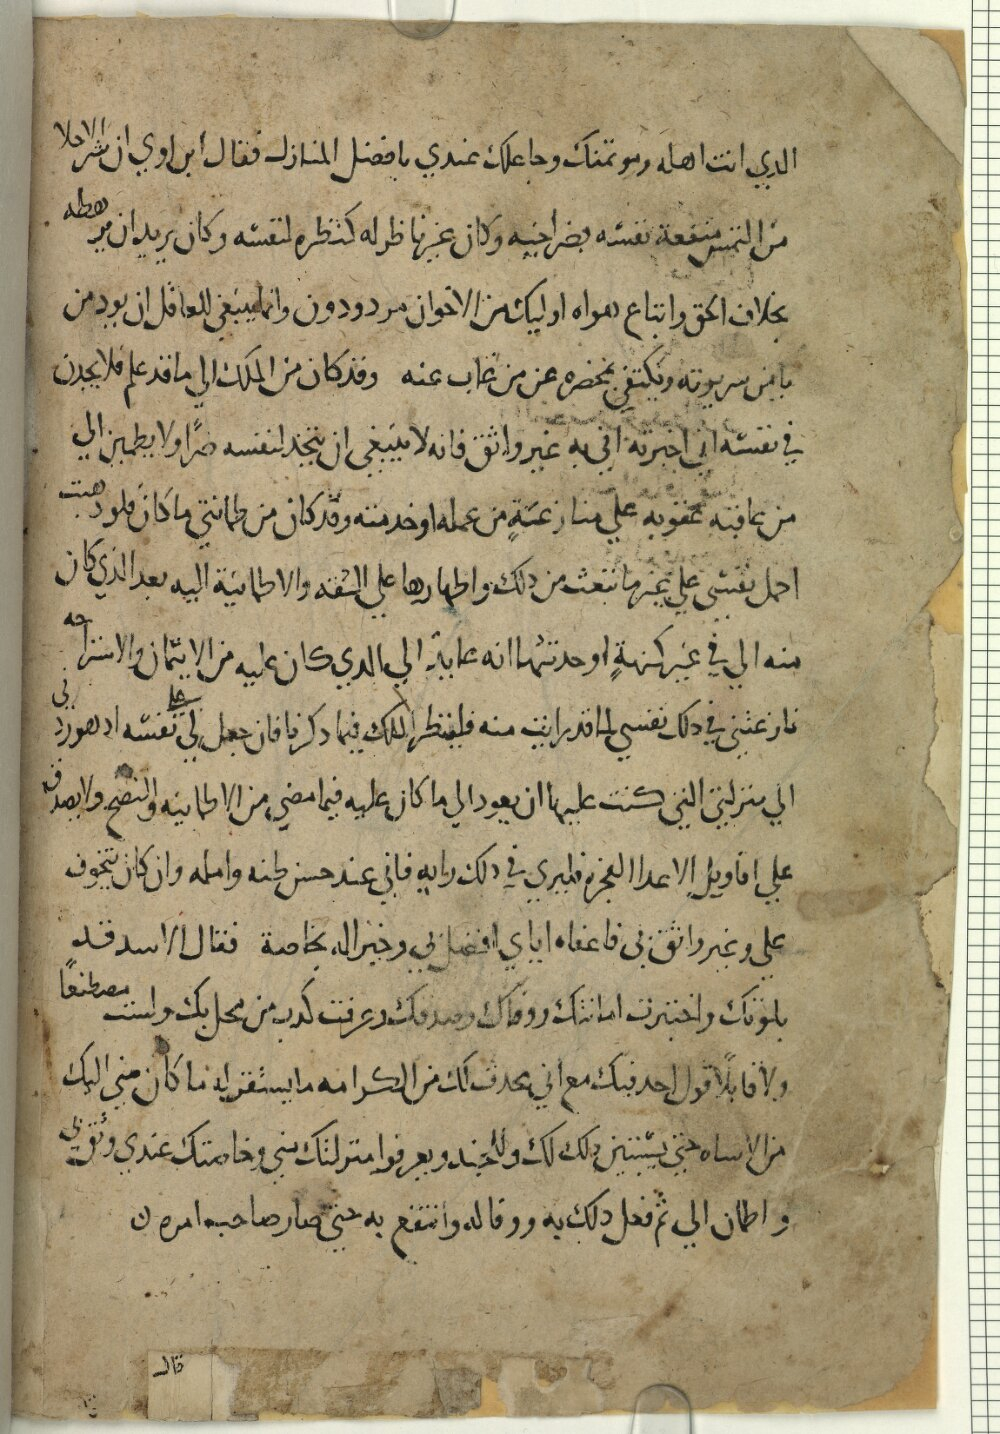 الذي انت اهله وموتمنك وجاعلك عندي بافضل المنازل فقال ابن اوي ان شر الاخلا
من التمس منفعة نفسه بضر اخيه وكان غير ناظر له كنظره لنفسه وكان يريد ان يرهطه
بخلاف الحق واتباع هواه اوليك من الاخوان مردودون وانما ينبغي للعاقل ان يود من
يامن سريرته ويكتفي بمحضره عن من غاب عنه وقد كان من الملك الي ما قد علم فلا يجدن
في نفسه اني اخبرته اني به غير واثق فانه لا ينبغي ان يتخذ لنفسه ضرا ولا يطمين الي
من عاقبه بعقوبه علي منازعةٍ من عمله او خدمته وقد كان من طمانتي ما كان فلو ذهبت
احمل نفسي علي غير ما تبعث من ذلك واظهارها علي الثقه والاطمانية اليه بعد الذي كان
منه الي في غير كنهةٍ او حدثتها انه عايد الي الذي كان عليه من الايتمان والاستراحه
نازعتني في ذلك نفسي لما قد رايت منه فلينظر الملك فيما ذكرنا فان جعل لي علي نفسه اذ هو ردني
الي منزلتي التي كنت عليها ان يعود الي ما كان عليه فيما مضي من الاطمانينه والنصح ولا يصدق
علي اقاويل الاعدا الفجره فليري في ذلك رايه فاني عند حسن ظنه وامله وان كان يتخوف
علي وغير واثق بي فاعفاه اياي افضل لي وخير اله بخاصة فقال الاسد قد
بلوتك واختبرت امانتك ووفاك وصدقك وعرفت كذب من محل بك ولست مصطنعًا
ولا قابلًا قول احد فيك مع اني محدث لك من الكرامه ما يستقر له ما كان مني اليك
من الاساه حتي يستبين ذلك لك وللجند ويعرفوا منزلتك مني وخاصتك عندي وثق بي
واطمان الي ثم فعل ذلك به ووفا له وانتفع به حتي صار صاحب امره
قال